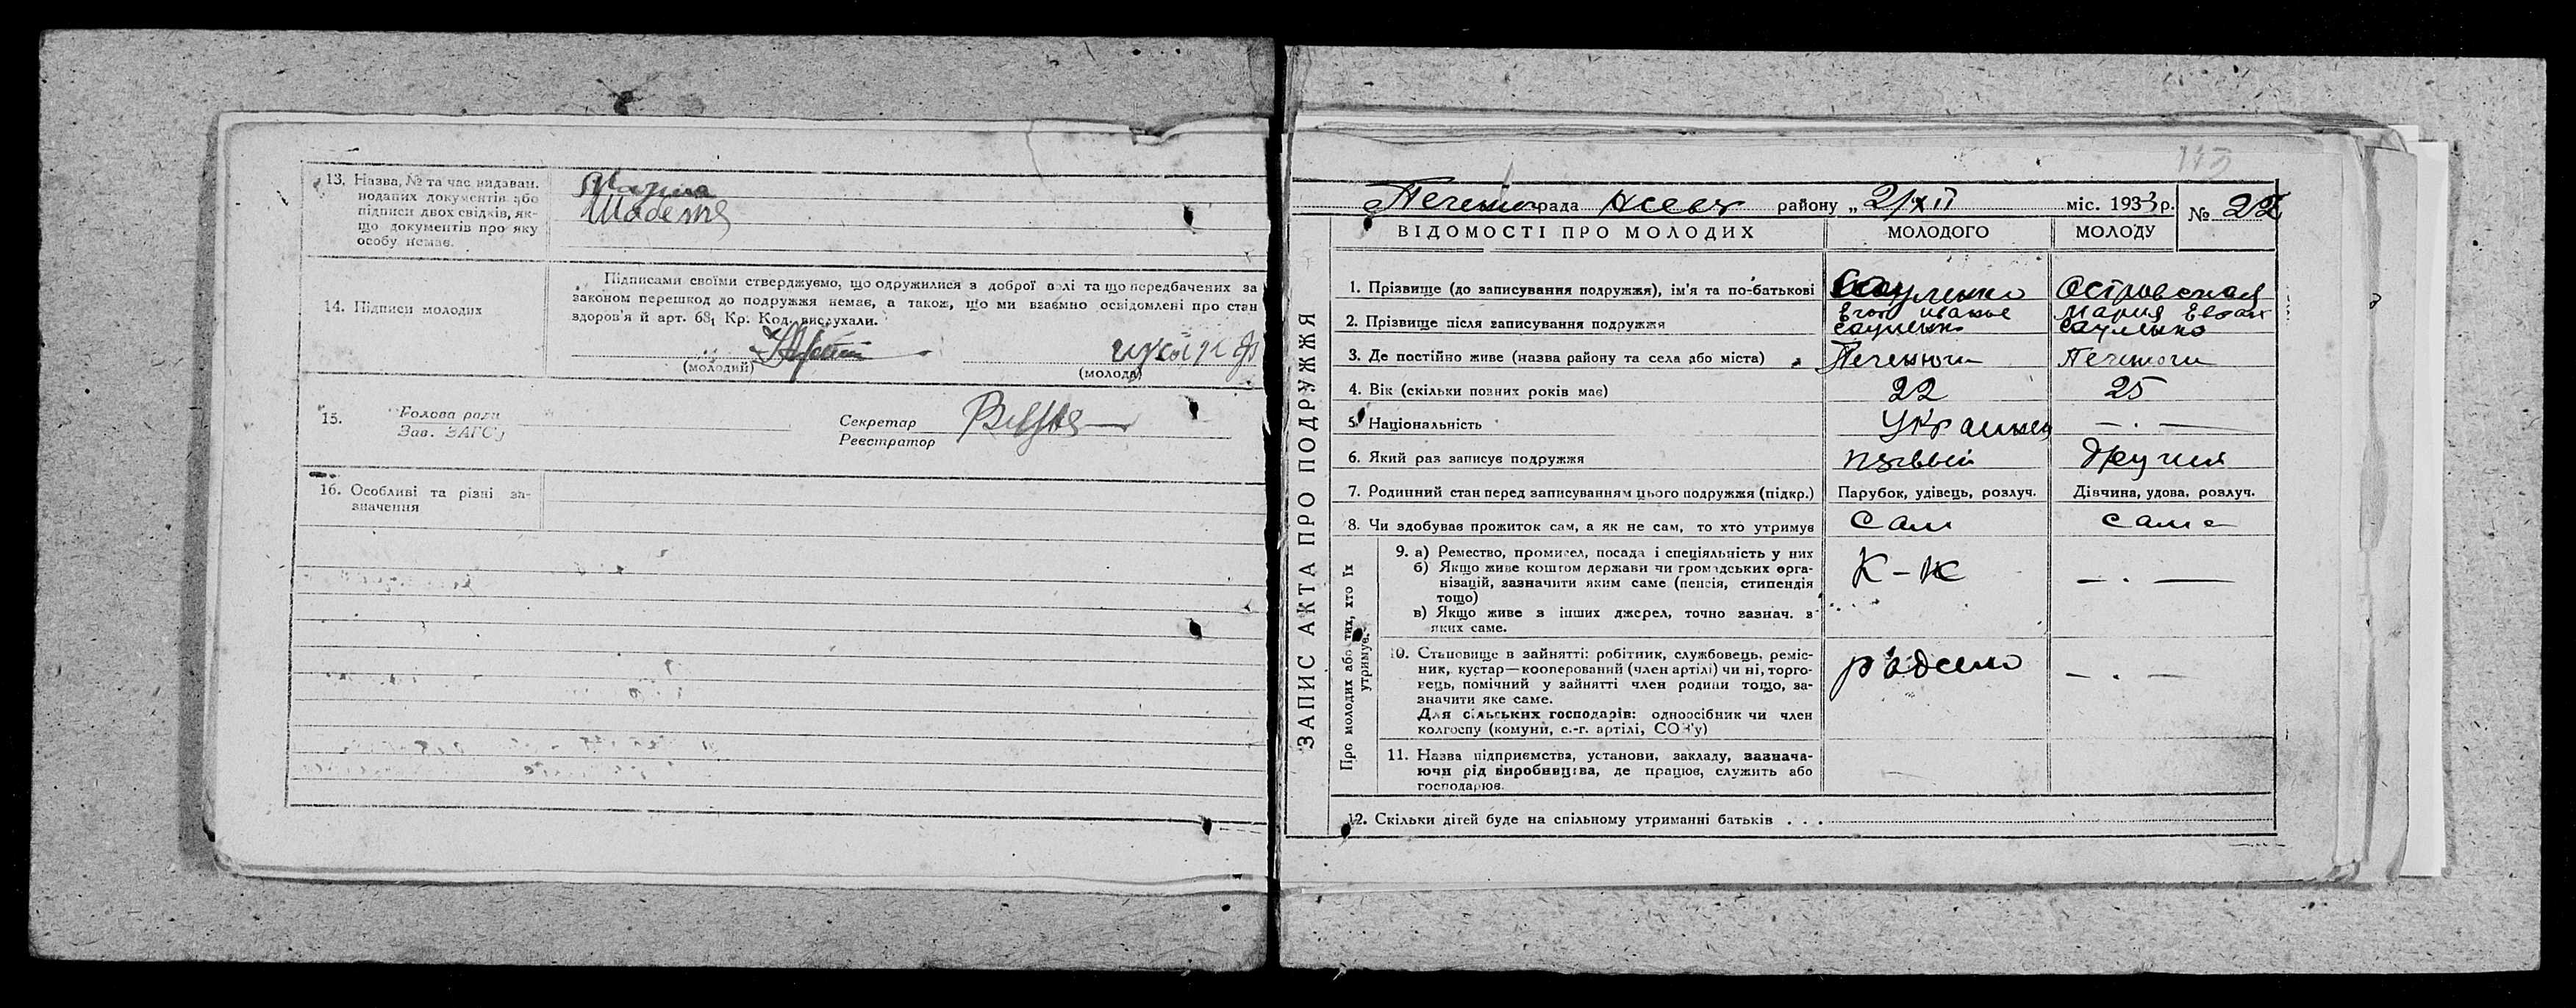 13. Назва, № та час видаван.
поданих документів або
підписи двох свідків, як-
що документів про яку
особу немає.
14. Підписи молодих
Підписами своїми стверджуємо, що одружилися з доброї волі та що передбачених за
законом перешкод до подружжя немає, а також, що ми взаємно освідомлені про стан
здоров'я й арт. 68₁ Кр. Код. вислухали.
(молодий)
(молода)
15. Голова ради
Зав. ЗАГС'у
Секретар
Реєстратор
16. Особливі та різні за-
значення
113
рада району „ 2/XII міс. 1933 р. № 22
ЗАПИС АКТА ПРО ПОДРУЖЖЯ
ВІДОМОСТІ ПРО МОЛОДИХ МОЛОДОГО МОЛОДУ
1. Прізвище (до записування подружжя), ім'я та по-батькові Сауленко Островская
Мария
2. Прізвище після записування подружжя Сауленко Сауленко
3. Де постійно живе (назва району та села або міста) Печенюги Печенюги
4. Вік (скільки повних років має) 22 25
5. Національність Украинец — . —
6. Який раз записує подружжя первый другий
7. Родинний стан перед записуванням цього подружжя (підкр.) Парубок, удівець, розлуч. Дівчина, удова, розлуч.
8. Чи здобував прожиток сам, а як не сам, то хто утримує Сам сама
Про молодих або тих, хто їх
утримує.
9. а) Ремество, промисел, посада і спеціяльність у них К-К — . —
б) Якщо живе коштом держави чи громадських орга-
нізацій, зазначити яким саме (пенсія, стипендія
тощо)
в) Якщо живе з інших джерел, точно зазнач. з
яких саме.
10. Становище в зайнятті: робітник, службовець, реміс-
ник, кустар—кооперований (член артілі) чи ні, торго-
вець, помічний у зайнятті член родини тощо, за-
значити яке саме. — . —
Для сільських господарів: одноосібник чи член
колгоспу (комуни, с.-г. артілі, СОЗ'у)
11. Назва підприємства, установи, закладу, зазнача-
ючи рід виробництва, де працює, служить або
господарює.
12. Скільки дітей буде на спільному утриманні батьків . . .